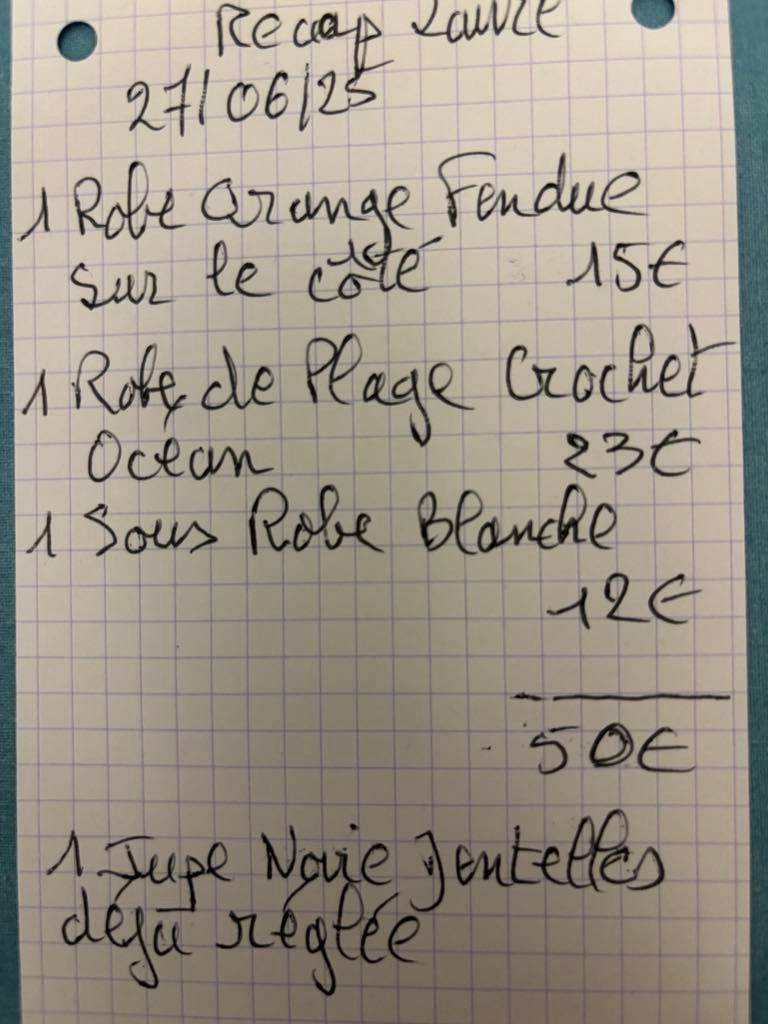 Recap
27/06/25
1 Robe Orange Fendue
sur le côté 15€
1 Robe de Plage Crochet
Ocean 23€
1 Sous Robe Blanche
12€
50€
1 Jupe Noire Dentelles
déjà réglée